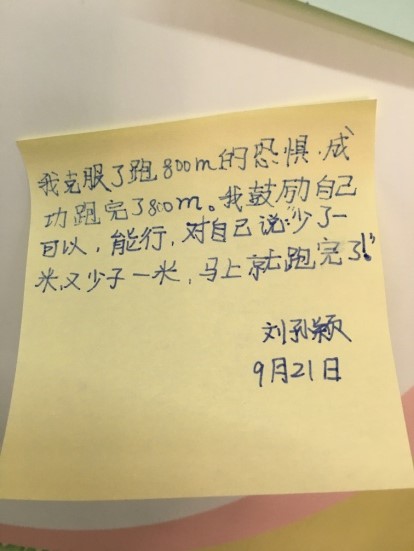 我克服了跑800m的恐惧,成
功跑完了800m。我鼓励自己
可以,能行,对自己说:"少了一
米,又少了一米,马上就跑完了!"
刘孔颖
9月21日